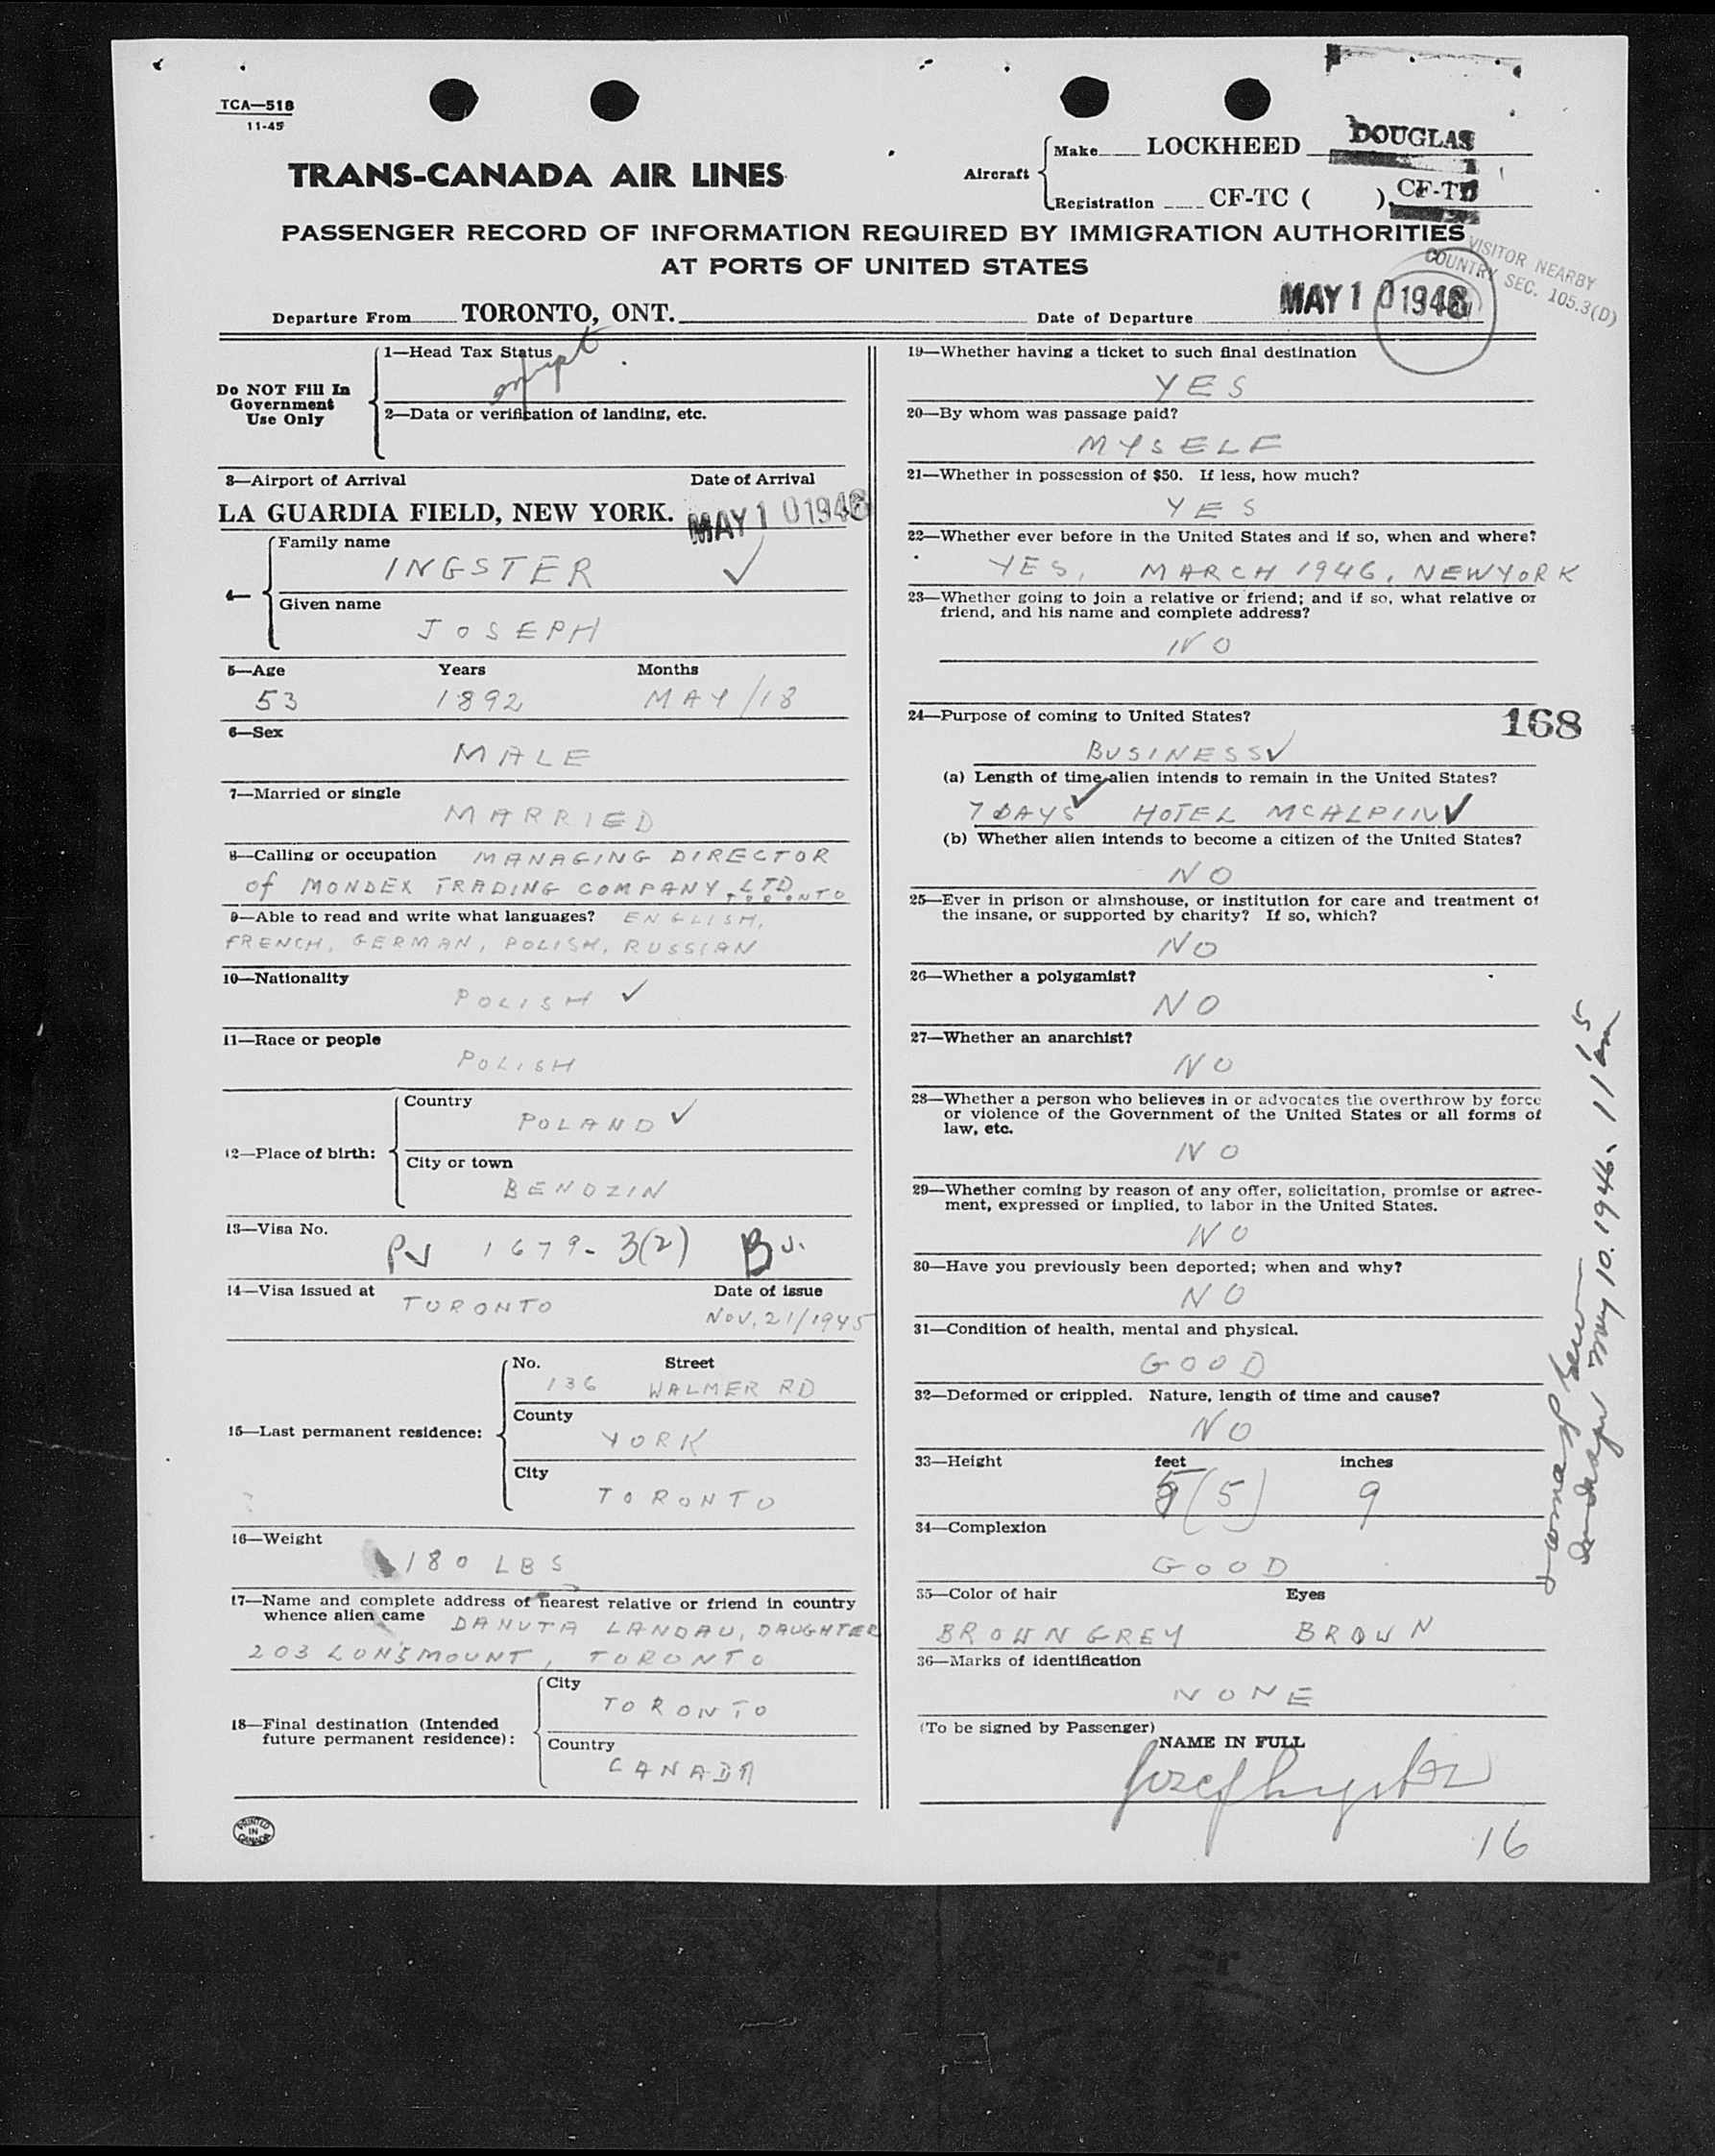 TCA—518
11-45
TRANS-CANADA AIR LINES
Aircraft
Make LOCKHEED DOUGLAS
Registration CF-TC ( ). CF-TD
PASSENGER RECORD OF INFORMATION REQUIRED BY IMMIGRATION AUTHORITIES
AT PORTS OF UNITED STATES
VISITOR NEARBY
COUNTRY SEC. 105.3(D)
Departure From TORONTO, ONT. Date of Departure MAY 10 1946
Do NOT Fill In
Government
Use Only
1—Head Tax Status
2—Data or verification of landing, etc.
3—Airport of Arrival Date of Arrival
LA GUARDIA FIELD, NEW YORK. MAY 10 1946
4—
Family name
INGSTER ✓
Given name
JOSEPH
5—Age Years Months
53 1892 MAY/18
6—Sex
MALE
7—Married or single
MARRIED
8—Calling or occupation MANAGING DIRECTOR
of MONDEX TRADING COMPANY LTD
TORONTO
9—Able to read and write what languages? ENGLISH,
FRENCH, GERMAN, POLISH, RUSSIAN
10—Nationality
POLISH ✓
11—Race or people
POLISH
12—Place of birth:
Country
POLAND ✓
City or town
BENDZIN
13—Visa No.
PV 1679-3(2)
14—Visa issued at Date of issue
TORONTO NOV. 21/1945
15—Last permanent residence:
No. Street
136 WALMER RD
County
YORK
City
TORONTO
16—Weight
180 LBS
17—Name and complete address of nearest relative or friend in country
whence alien came DANUTA LANDAU, DAUGHTER
203 LONSMOUNT, TORONTO
18—Final destination (Intended
future permanent residence):
City
TORONTO
Country
CANADA
PRINTED
IN
CANADA
19—Whether having a ticket to such final destination
YES
20—By whom was passage paid?
MYSELF
21—Whether in possession of $50. If less, how much?
YES
22—Whether ever before in the United States and if so, when and where?
YES, MARCH 1946, NEWYORK
23—Whether going to join a relative or friend; and if so, what relative or
friend, and his name and complete address?
NO
24—Purpose of coming to United States?
168
BUSINESS ✓
(a) Length of time alien intends to remain in the United States?
7 DAYS ✓ HOTEL MCALPIN ✓
(b) Whether alien intends to become a citizen of the United States?
NO
25—Ever in prison or almshouse, or institution for care and treatment of
the insane, or supported by charity? If so, which?
NO
26—Whether a polygamist?
NO
27—Whether an anarchist?
NO
28—Whether a person who believes in or advocates the overthrow by force
or violence of the Government of the United States or all forms of
law, etc.
NO
29—Whether coming by reason of any offer, solicitation, promise or agree-
ment, expressed or implied, to labor in the United States.
NO
30—Have you previously been deported; when and why?
NO
31—Condition of health, mental and physical.
GOOD
32—Deformed or crippled. Nature, length of time and cause?
NO
33—Height feet inches
5 (5) 9
34—Complexion
GOOD
35—Color of hair Eyes
BROWN GREY BROWN
36—Marks of identification
NONE
(To be signed by Passenger)
NAME IN FULL
Jozef Ingster
16
May 10. 1946. 11 15 am